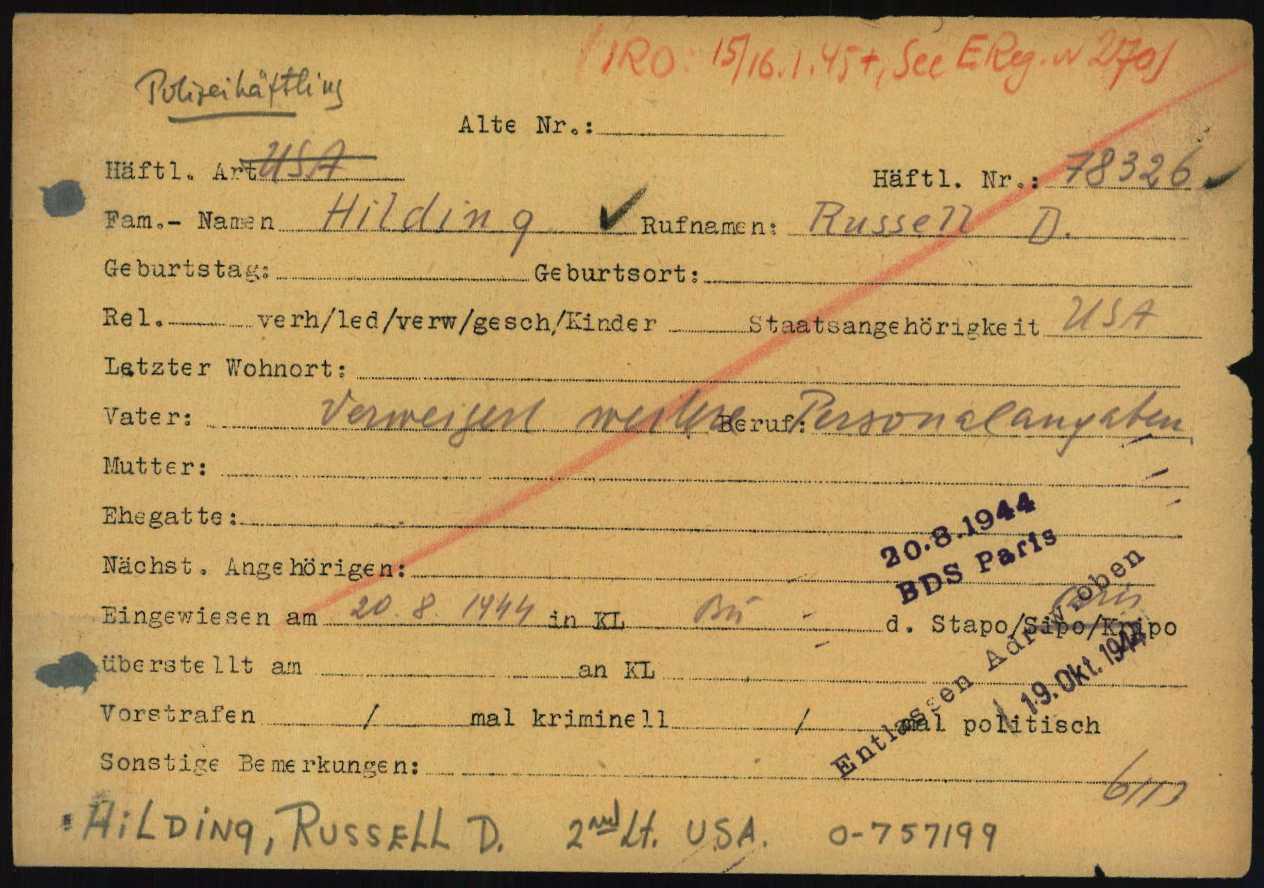 (IRO: 15/16.1.45+, See E.Reg.
Polizeihäftling
Alte Nr.:
Häftl. Art USA
Häftl. Nr.: 78326
Fam.- Namen Hilding Rufnamen: Russell D.
Geburtstag: Geburtsort:
Rel. verh/led/verw/gesch/Kinder Staatsangehörigkeit USA
Letzter Wohnort:
Vater: Beruf:
Verweigert weitere Personalangaben
Mutter:
Ehegatte:
20.8.1944
BDS Paris
Nächst. Angehörigen:
Eingewiesen am 20.8.1944 in KL Bu d. Stapo/Sipo/Kripo Paris
überstellt am an KL
Entlassen Adr. w. oben
19. Okt. 1944
Vorstrafen / mal kriminell / mal politisch
Sonstige Bemerkungen:
HILDING, RUSSELL D. 2nd Lt. USA. O-757199